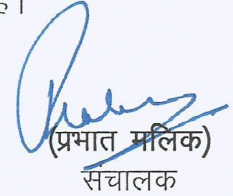 है।
(प्रभात मलिक)
संचालक